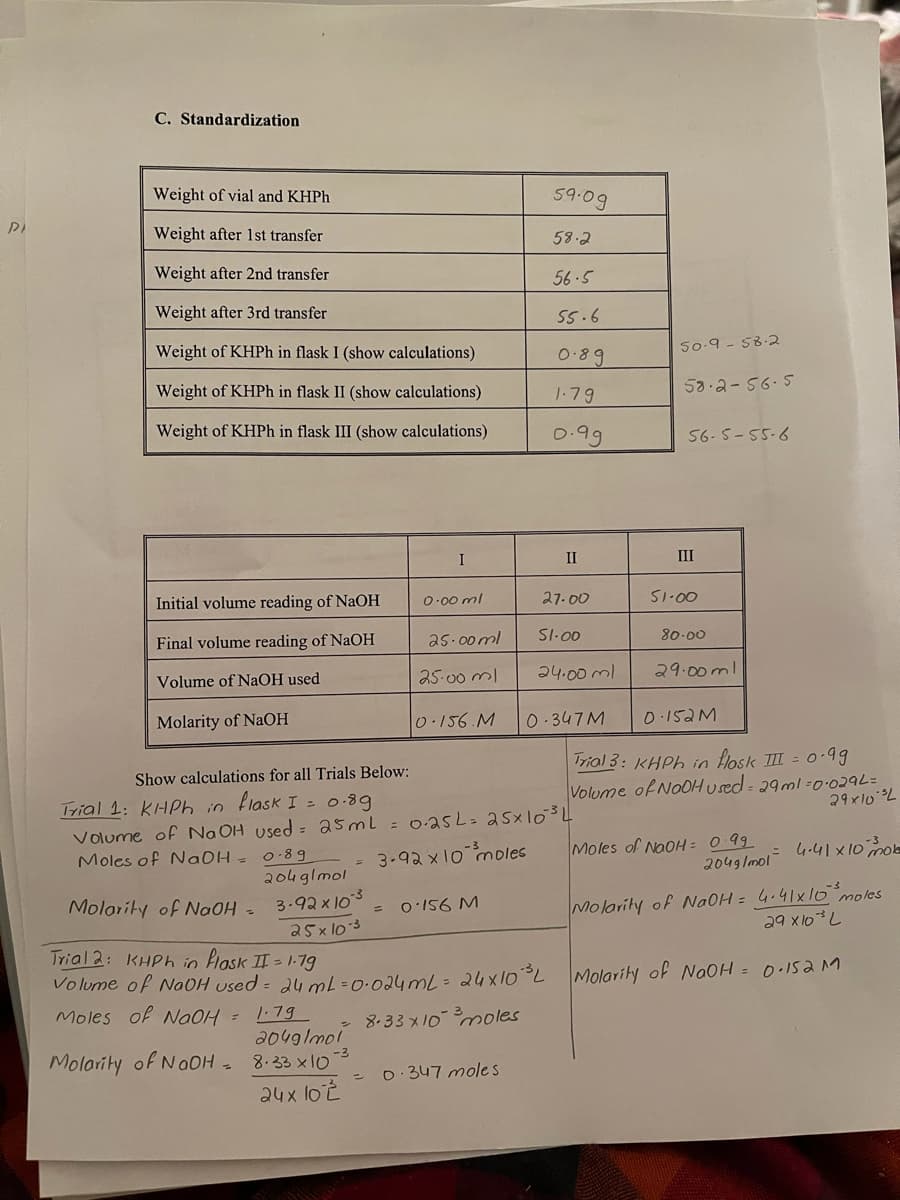 C. Standardization
Weight of vial and KHPh 59.0g
Weight after 1st transfer 58.2
Weight after 2nd transfer 56.5
Weight after 3rd transfer 55.6
Weight of KHPh in flask I (show calculations) 0.8g 50.9 - 58.2
Weight of KHPh in flask II (show calculations) 1.7g 58.2 - 56.5
Weight of KHPh in flask III (show calculations) 0.9g 56.5 - 55.6
I II III
Initial volume reading of NaOH 0.00 ml 27.00 51.00
Final volume reading of NaOH 25.00 ml 51.00 80.00
Volume of NaOH used 25.00 ml 24.00 ml 29.00 ml
Molarity of NaOH 0.156.M 0.347M 0.152M
Show calculations for all Trials Below:
Trial 1: KHPh in flask I = 0.8g
Volume of NaOH used = 25mL = 0.25L = 25x10⁻³L
Moles of NaOH = 0.8g / 204g/mol = 3.92 x 10⁻³ moles
Molarity of NaOH = 3.92 x 10⁻³ / 25 x 10⁻³ = 0.156 M
Trial 2: KHPh in flask II = 1.7g
Volume of NaOH used = 24 mL = 0.024mL = 24x10⁻³L
Moles of NaOH = 1.7g / 204g/mol = 8.33 x 10⁻³ moles
Molarity of NaOH = 8.33 x 10⁻³ / 24 x 10⁻³L = 0.347 moles
Trial 3: KHPh in flask III = 0.9g
Volume of NaOH used = 29ml = 0.029L =
29x10⁻³L
Moles of NaOH = 0.9g / 204g/mol = 4.41 x 10⁻³ mole
Molarity of NaOH = 4.41x10⁻³ moles / 29 x10⁻³ L
Molarity of NaOH = 0.152 M